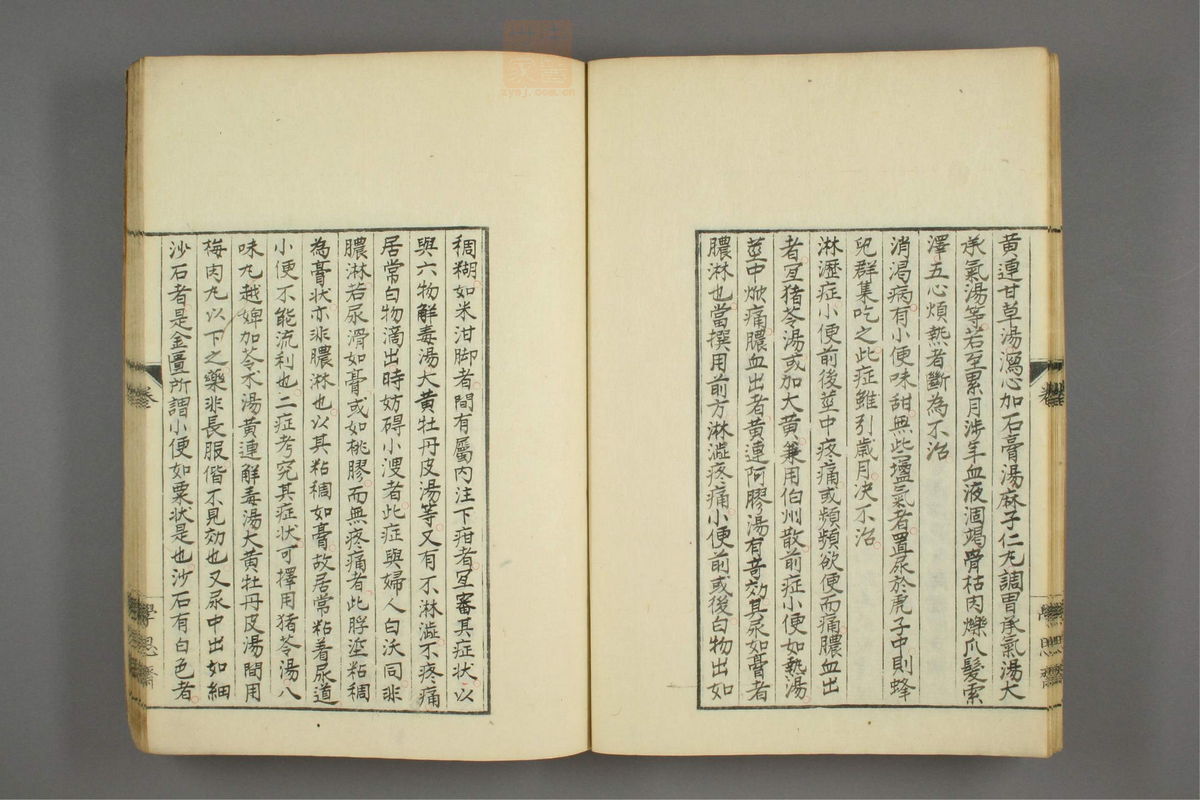 黃連甘草湯瀉心加石膏湯麻子仁丸調胃承氣湯大
承氣湯等若至累月涉年血液涸竭骨枯肉爍爪髮索
澤五心煩熱者斷為不治
消渴病有小便味甜無些𫝑氣者置尿於虎子中則蜂
兒群集吃之此症雖引歲月決不治
淋瀝症小便前後莖中疼痛或頻頻欲便而痛膿血出
者宜猪苓湯或加大黃兼用伯州散前症小便如熱湯
莖中焮痛膿血出者黃連阿膠湯有奇効其尿如膏者
膿淋也當撰用前方淋澁疼痛小便前或後白物出如
稠糊如米泔脚者間有屬內注下疳者宜審其症狀以
與六物解毒湯大黃牡丹皮湯等又有不淋澁不疼痛
居常白物滴出時妨碍小溲者此症與婦人白沃同非
膿淋若尿滑如膏或如桃膠而無疼痛者此脬塗粘稠
為膏狀亦非膿淋也以其粘稠如膏故居常粘着尿道
小便不能流利也二症考究其症狀可擇用猪苓湯八
味丸越婢加苓朮湯黃連解毒湯大黃牡丹皮湯間用
梅肉丸以下之藥非長服偕不見効也又尿中出如細
沙石者是金匱所謂小便如粟狀是也沙石有白色者
卷
學思齋